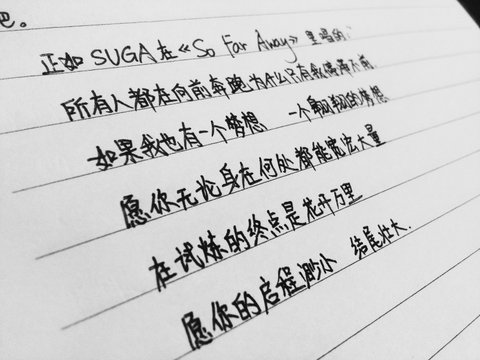 吧。
正如 SUGA 在《So Far Away》里唱的:
所有人都在向前奔跑 为什么只有我停滞不前
如果我也有一个梦想 一个翱翔的梦想
愿你无论身在何处都能宽宏大量
在试炼的终点是花开万里
愿你的启程渺小 结尾壮大.